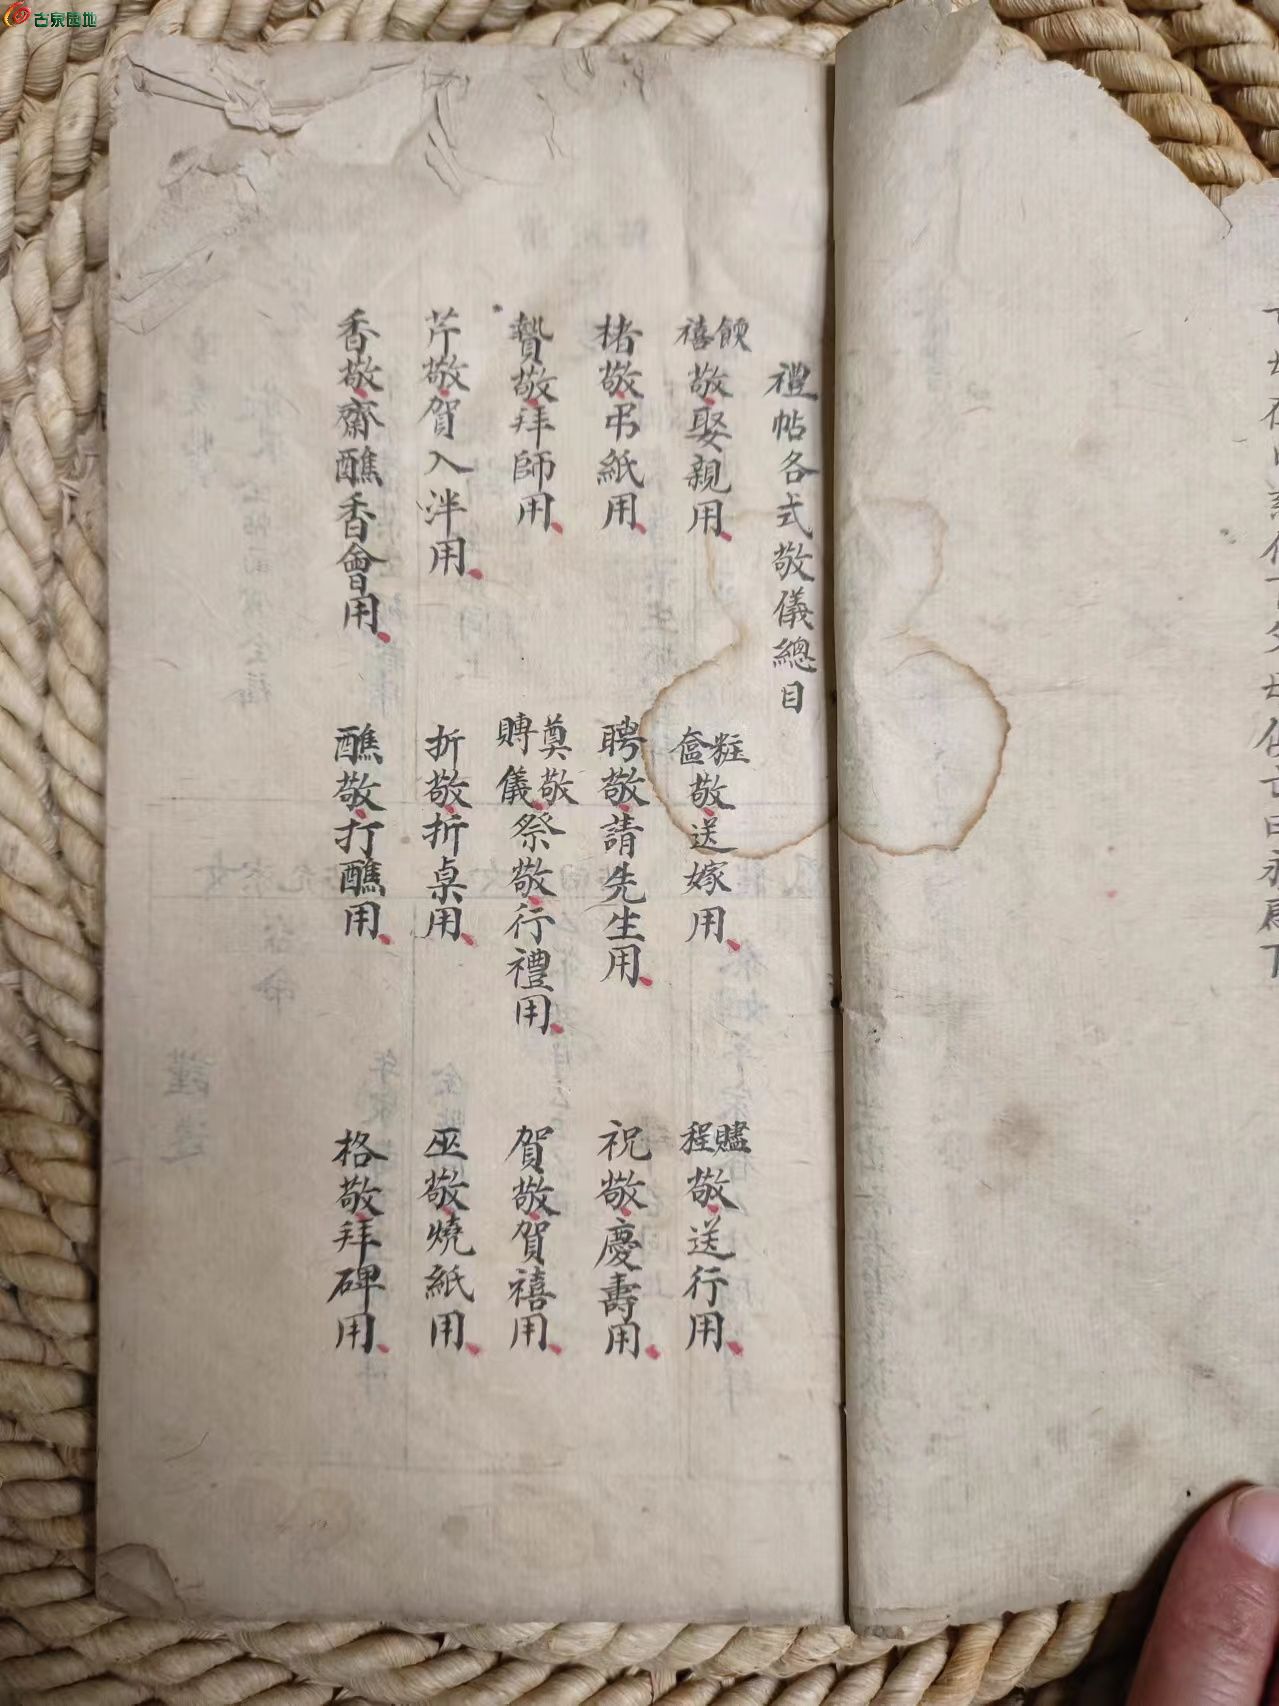 古泉园地
禮帖各式敬儀總目
餪禧敬娶親用
粧奩敬送嫁用
贐程敬送行用
楮敬弔紙用
聘敬請先生用
祝敬慶壽用
贄敬拜師用
奠敬賻儀祭敬行禮用
賀敬賀禧用
芹敬賀入泮用
折敬折桌用
巫敬燒紙用
香敬齋醮香會用
醮敬打醮用
格敬拜碑用